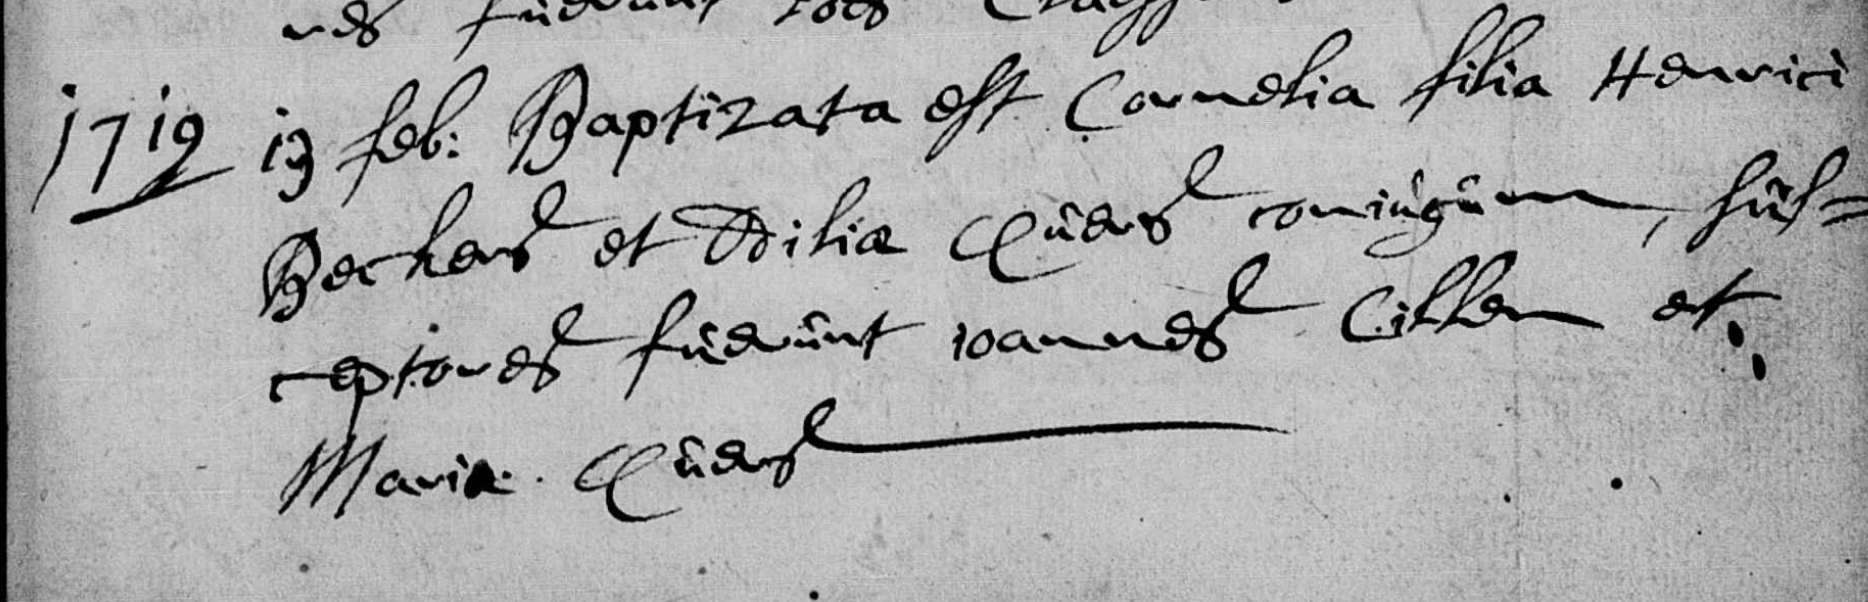 nes fuerunt
1719 19 feb: Baptizata est Cornelia filia Henrici
Beckers et Odiliæ Quers coniugum, sus=
ceptores fuerunt ioannes Cillen et
Maria Quers